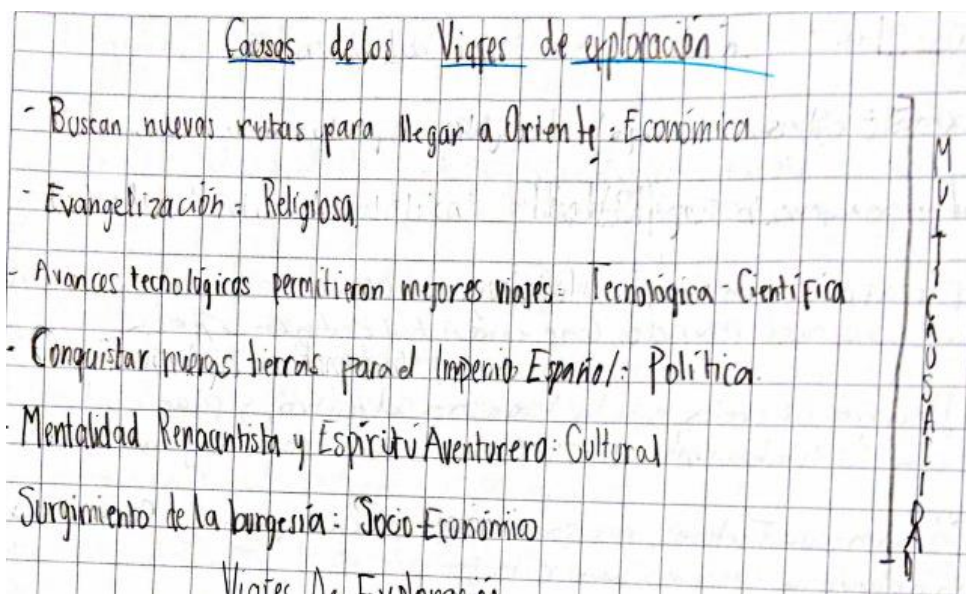 Causas de los Viajes de exploración
- Buscan nuevas rutas para llegar a Oriente: Económica
- Evangelización: Religiosa
- Avances tecnológicos permitieron mejores viajes: Tecnológica - Científica
- Conquistar nuevas tierras para el Imperio Español: Política.
- Mentalidad Renacentista y Espíritu Aventurero: Cultural
Surgimiento de la burgesía: Socio-Económico
MULTICAUSALIDAD
Viajes De Exploración